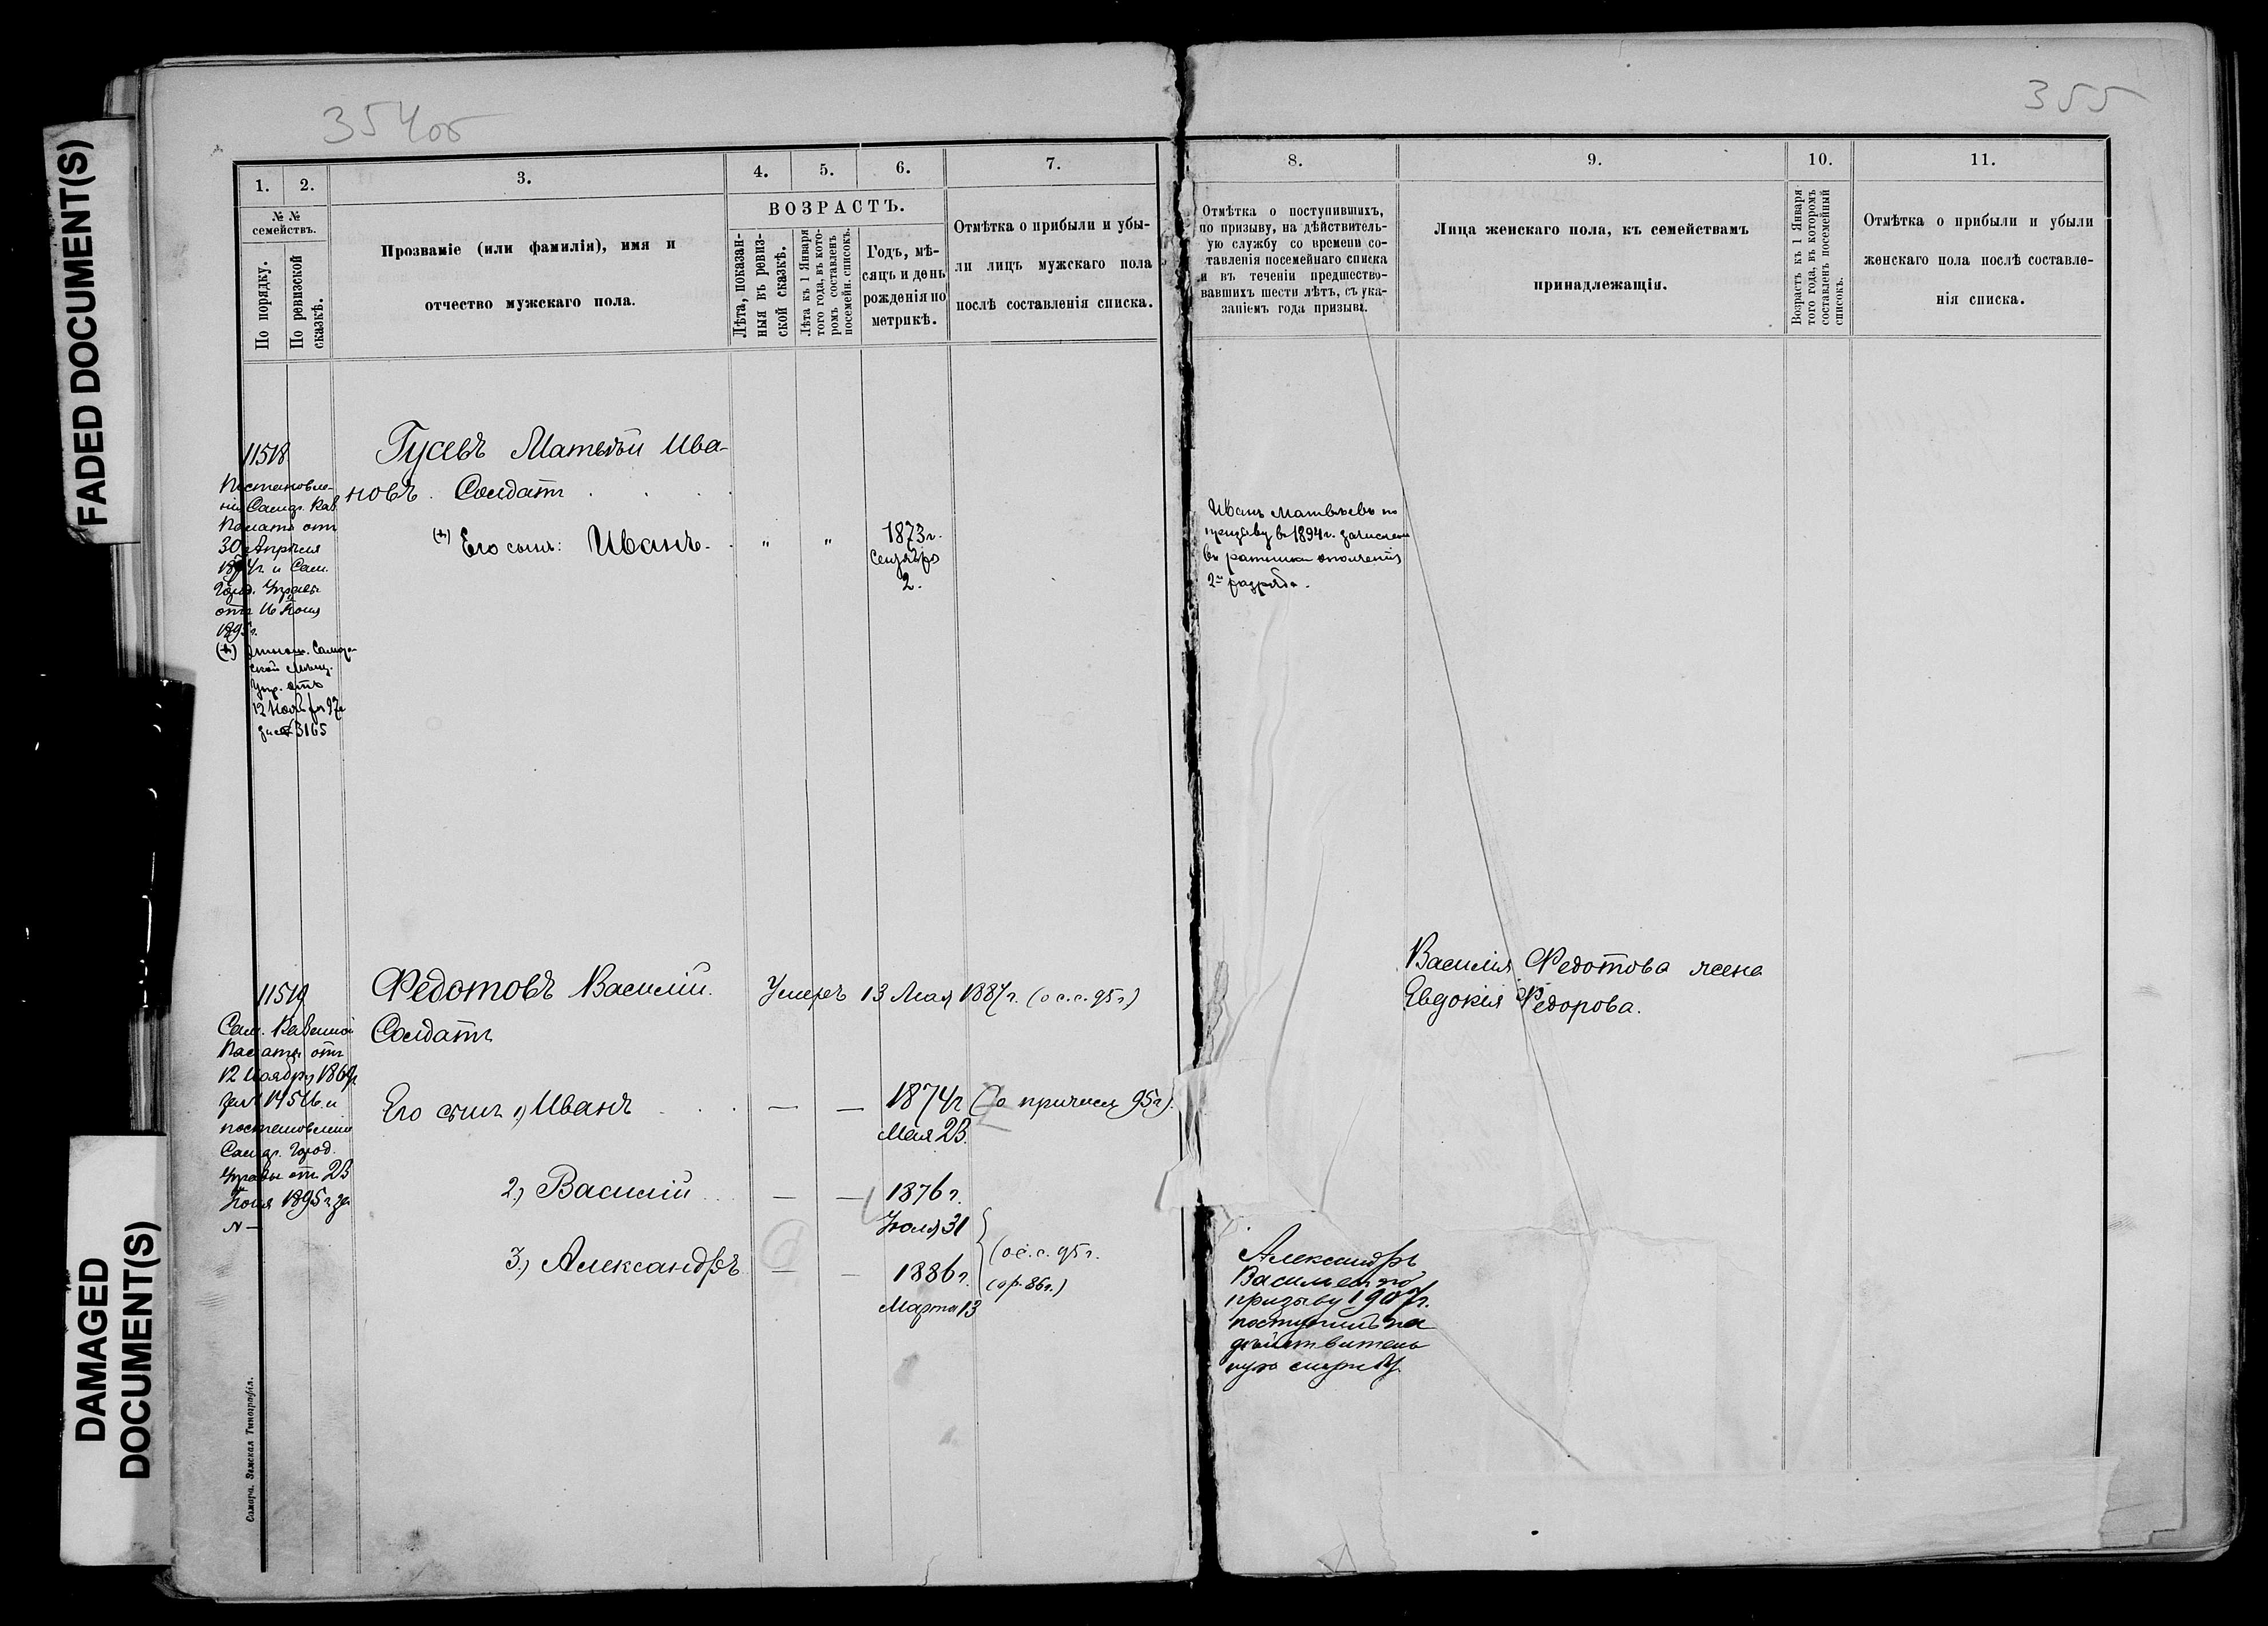 FADED DOCUMENT(S)
DAMAGED
DOCUMENT(S)
354об
355
1. 2. 3. 4. 5. 6. 7.
№ №
семействъ.
По порядку.
По ревизской
сказкѣ.
Прозваніе (или фамилія), имя и
отчество мужскаго пола.
ВОЗРАСТЪ.
Лѣта, показан-
ныя въ ревиз-
ской сказкѣ.
Лѣта къ 1 Января
того года, въ кото-
ромъ составленъ
посемейн. списокъ.
Годъ, мѣ-
сяцъ и день
рожденія по
метрикѣ.
Отмѣтка о прибыли и убы-
ли лицъ мужскаго пола
послѣ составленія списка.
8. 9. 10. 11.
Отмѣтка о поступившихъ,
по призыву, на дѣйствитель-
ую службу со времени со-
тавленія посемейнаго списка
и въ теченіи предшество-
вавшихъ шести лѣтъ, съ ука-
заніемъ года призыва.
Лица женскаго пола, къ семействамъ
принадлежащія.
Возрастъ къ 1 Января
того года, въ которомъ
составленъ посемейный
списокъ.
Отмѣтка о прибыли и убыли
женскаго пола послѣ составле-
нія списка.
11518
Постановле-
нія Самар. Каз.
Палаты отъ
30 Апрѣля
и Сам.
Город. Управы
отъ 16 Іюня
1895г.
(+) Самар-
ской Мѣщ.
Упр. отъ
12 Ноября 97г
за № 3165
Гусевъ Матвѣй Ива-
новъ. Солдатъ
(+) Его сынъ: Иванъ. " " 1873г.
Сентября
2.
Иванъ Матвѣевъ по
призыву въ 1894г. зачисленъ
въ ратники ополченія
2го разряда.
11519
Сам. Казенной
Палаты отъ
12 Ноября
за № 14516 и
постановленія
Самар. Город.
Управы отъ 23
Іюня 1895г. за
№ —
Федотовъ Василій. Умеръ 13 Мая 1887г. (о с.с. 95г)
Солдатъ
Его сын. 1) Иванъ — — 1874г (о причисл 95г).
Мая 23.
2) Василій — — 1876г.
Іюля 31
3) Александръ — — 1886г.
Марта 13
(о с.с. 95г.
(ор. 86г.)
Василія Федотова жена
Евдокія Федорова.
Александръ
Васильевъ по
призыву 1907г.
поступилъ на
дѣйствитель
ную службу
Самара. Земская Типографія.